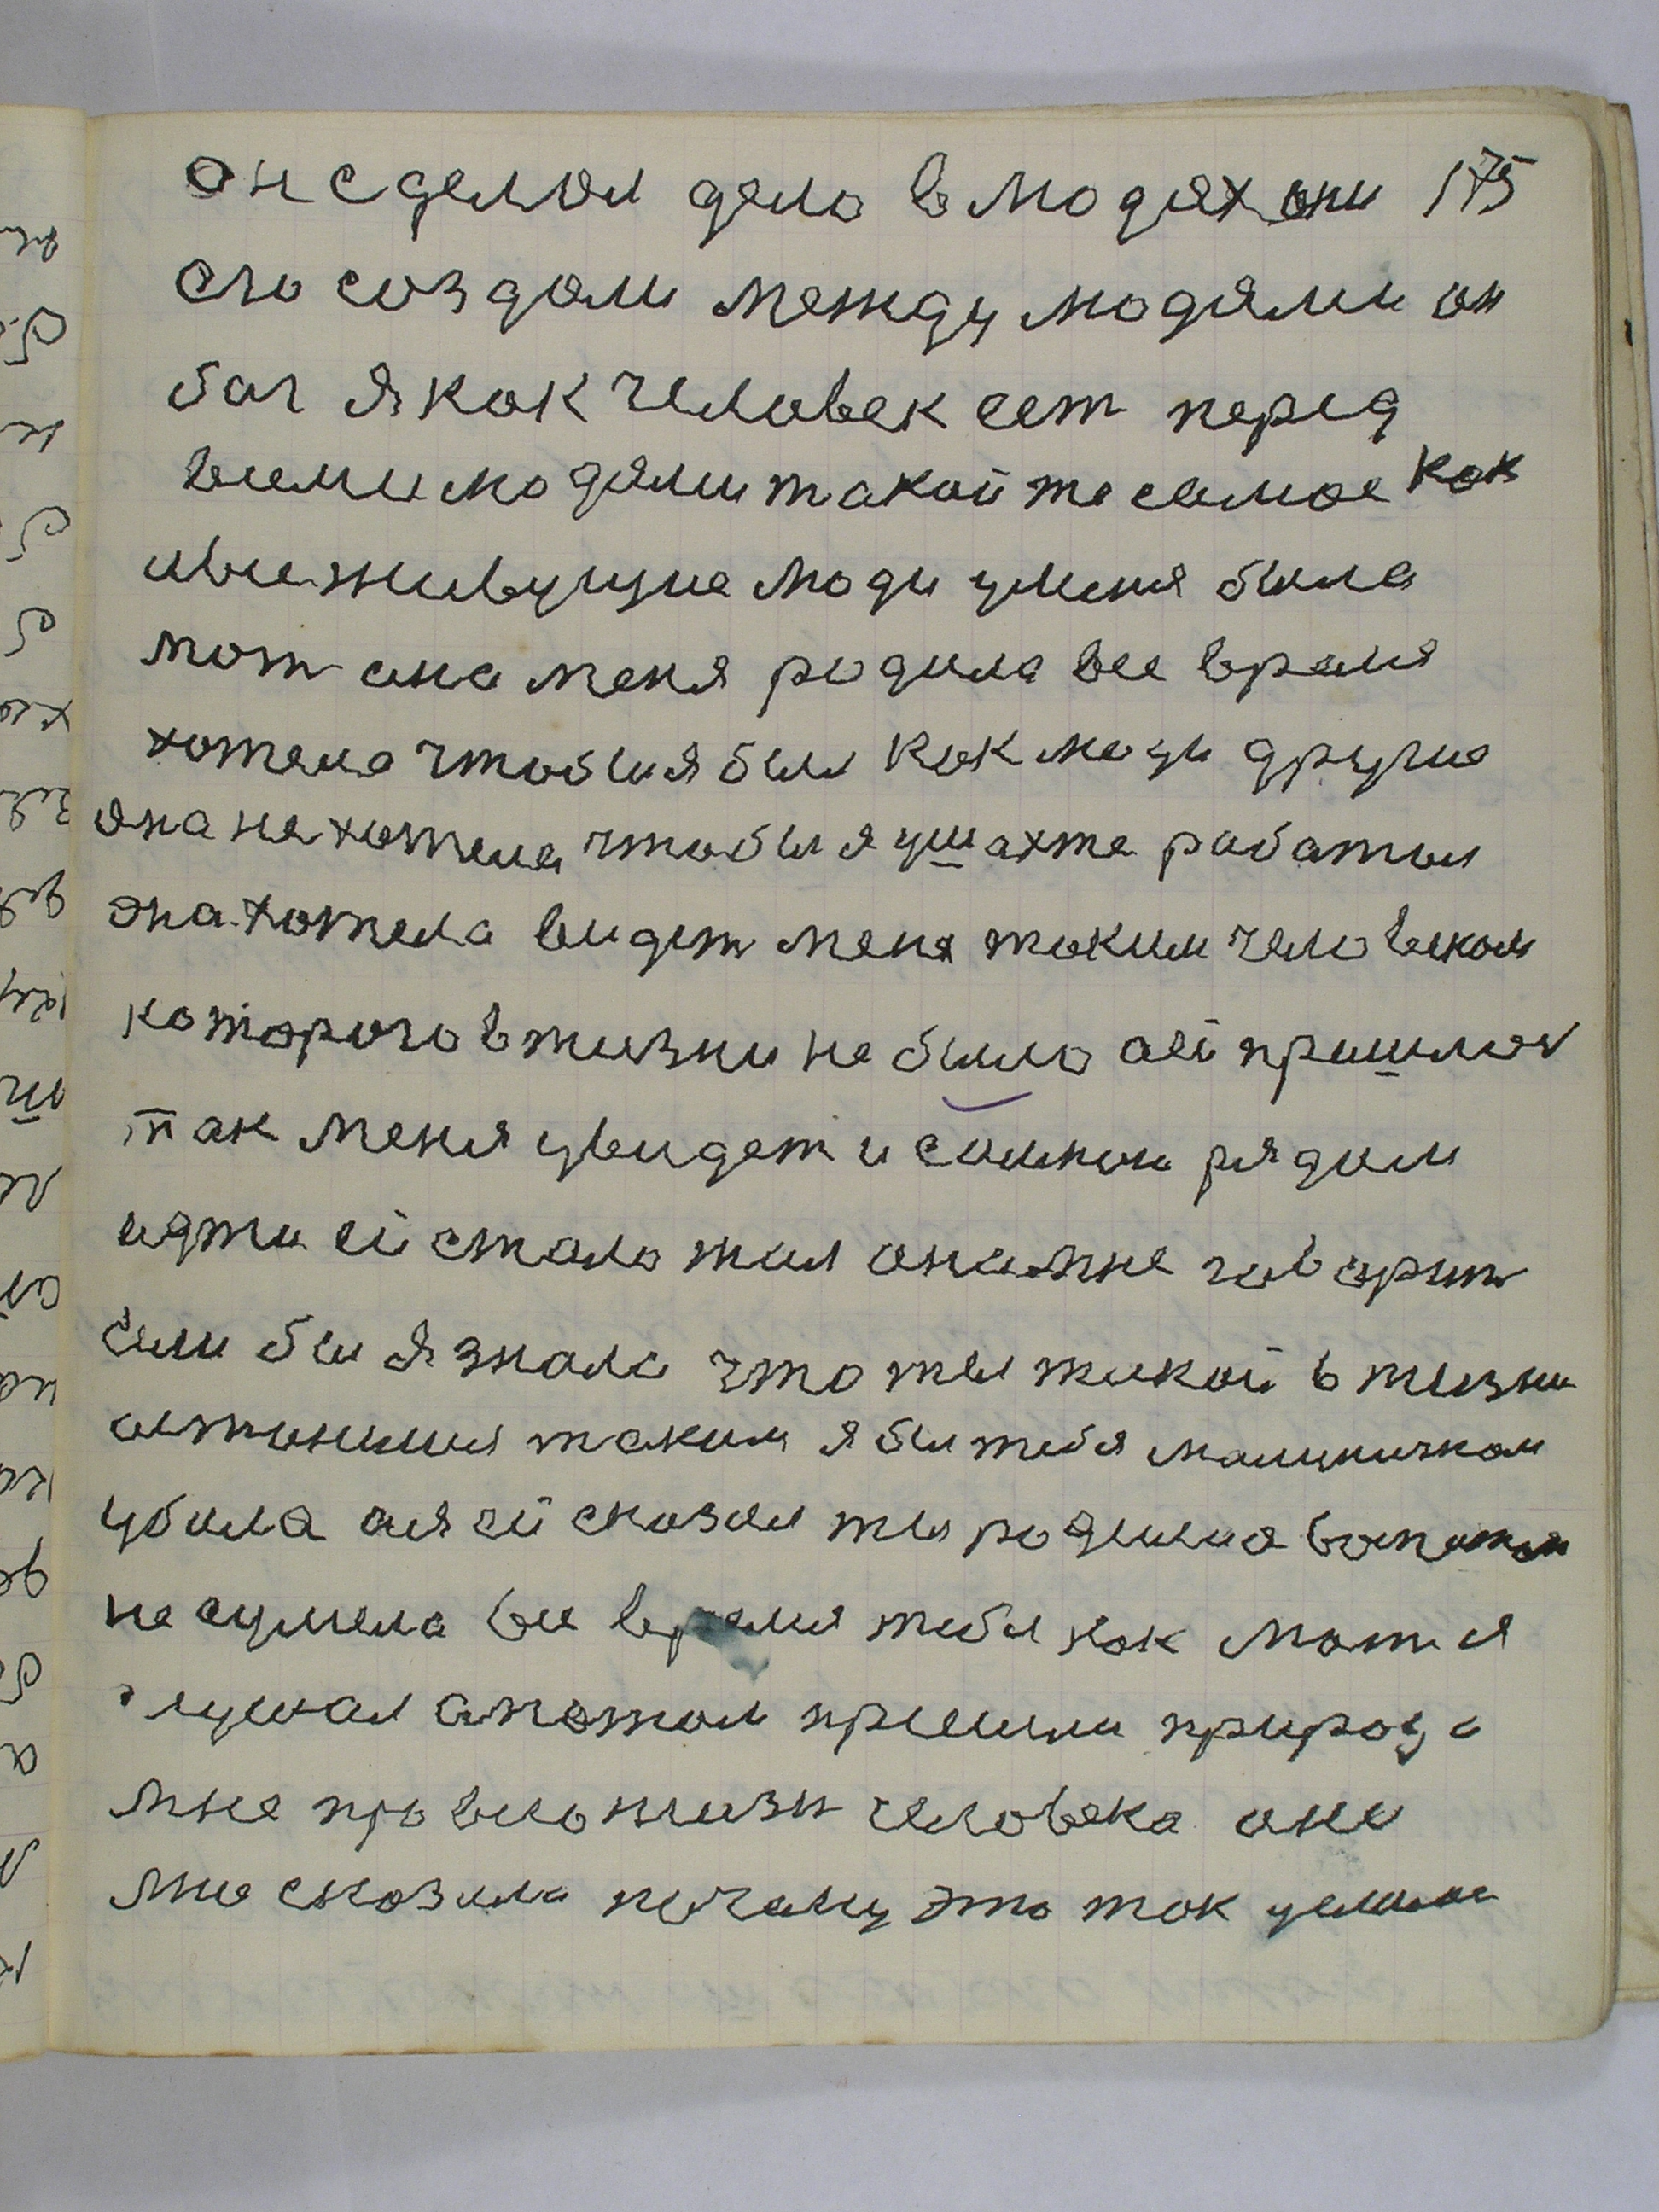 он сделал дело в людях они 175
его создали между людями он
бог я как человек ест перед
вами людями такой же самое как
и вы живущие люди у меня была
мат она меня родила все время
хотела чтобы я был как люди другие
она не хотела чтобы я у шахте работал
она хотела видет меня таким человеком
которого в жизни не было а ей пришлос
так меня увидет и со мною рядом
идти ей стало жал она мне говорит
если бы я знала что ты такой в жизни
астанишся таким я бы тебя малчиком
убила а я ей сказал ты родила воспитат
не сумела все время тебя как мат я
слушал а потом пришли природа
мне про всю жизн человека они
мне сказали почему это так